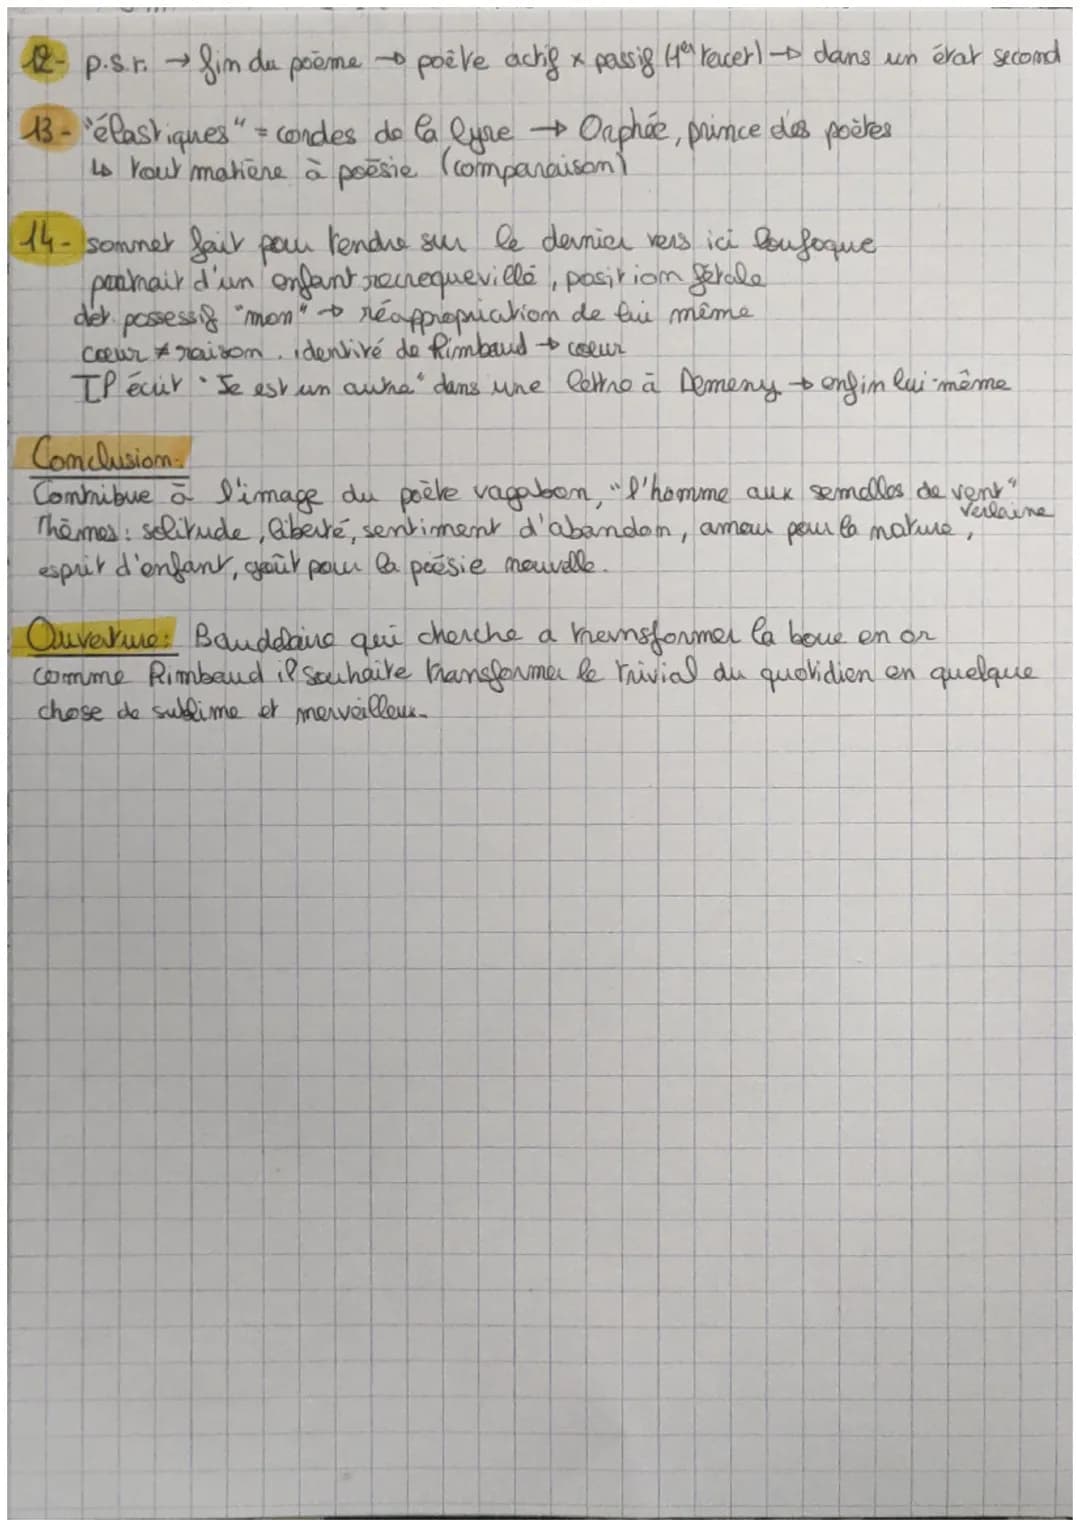 12- p.s.r. → fin du poème → poète actif x passif (1er tercet) → dans un état second
13- "élastiques" = cordes de la lyre → Orphée, prince des poètes
↳ tout matière à poèsie (comparaison)
14- sonnet fait pour tendre sur le dernier vers ici loufoque
portrait d'un enfant recroquevillé, position fétale
det. possessif "mon" → réappropriation de lui même
cœur ≠ raison. identité de Rimbaud → cœur
IP écrit "Je est un autre" dans une lettre à Demeny → enfin lui-même
Conclusion:
Contribue à l'image du poète vagabon, "l'homme aux semelles de vent"
Verlaine
Thèmes: solitude, liberté, sentiment d'abandon, amour pour la nature,
esprit d'enfant, goût pour la poésie nouvelle.
Ouverture: Baudelaire qui cherche a transformer la boue en or
comme Rimbaud il souhaite transformer le trivial du quotidien en quelque
chose de sublime et merveilleux.